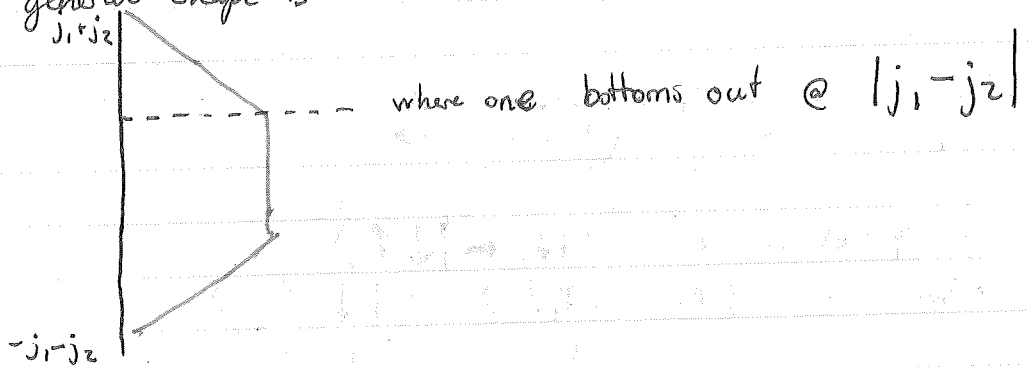 general shape is
j₁+j₂
where one bottoms out @ |j₁-j₂|
-j₁-j₂